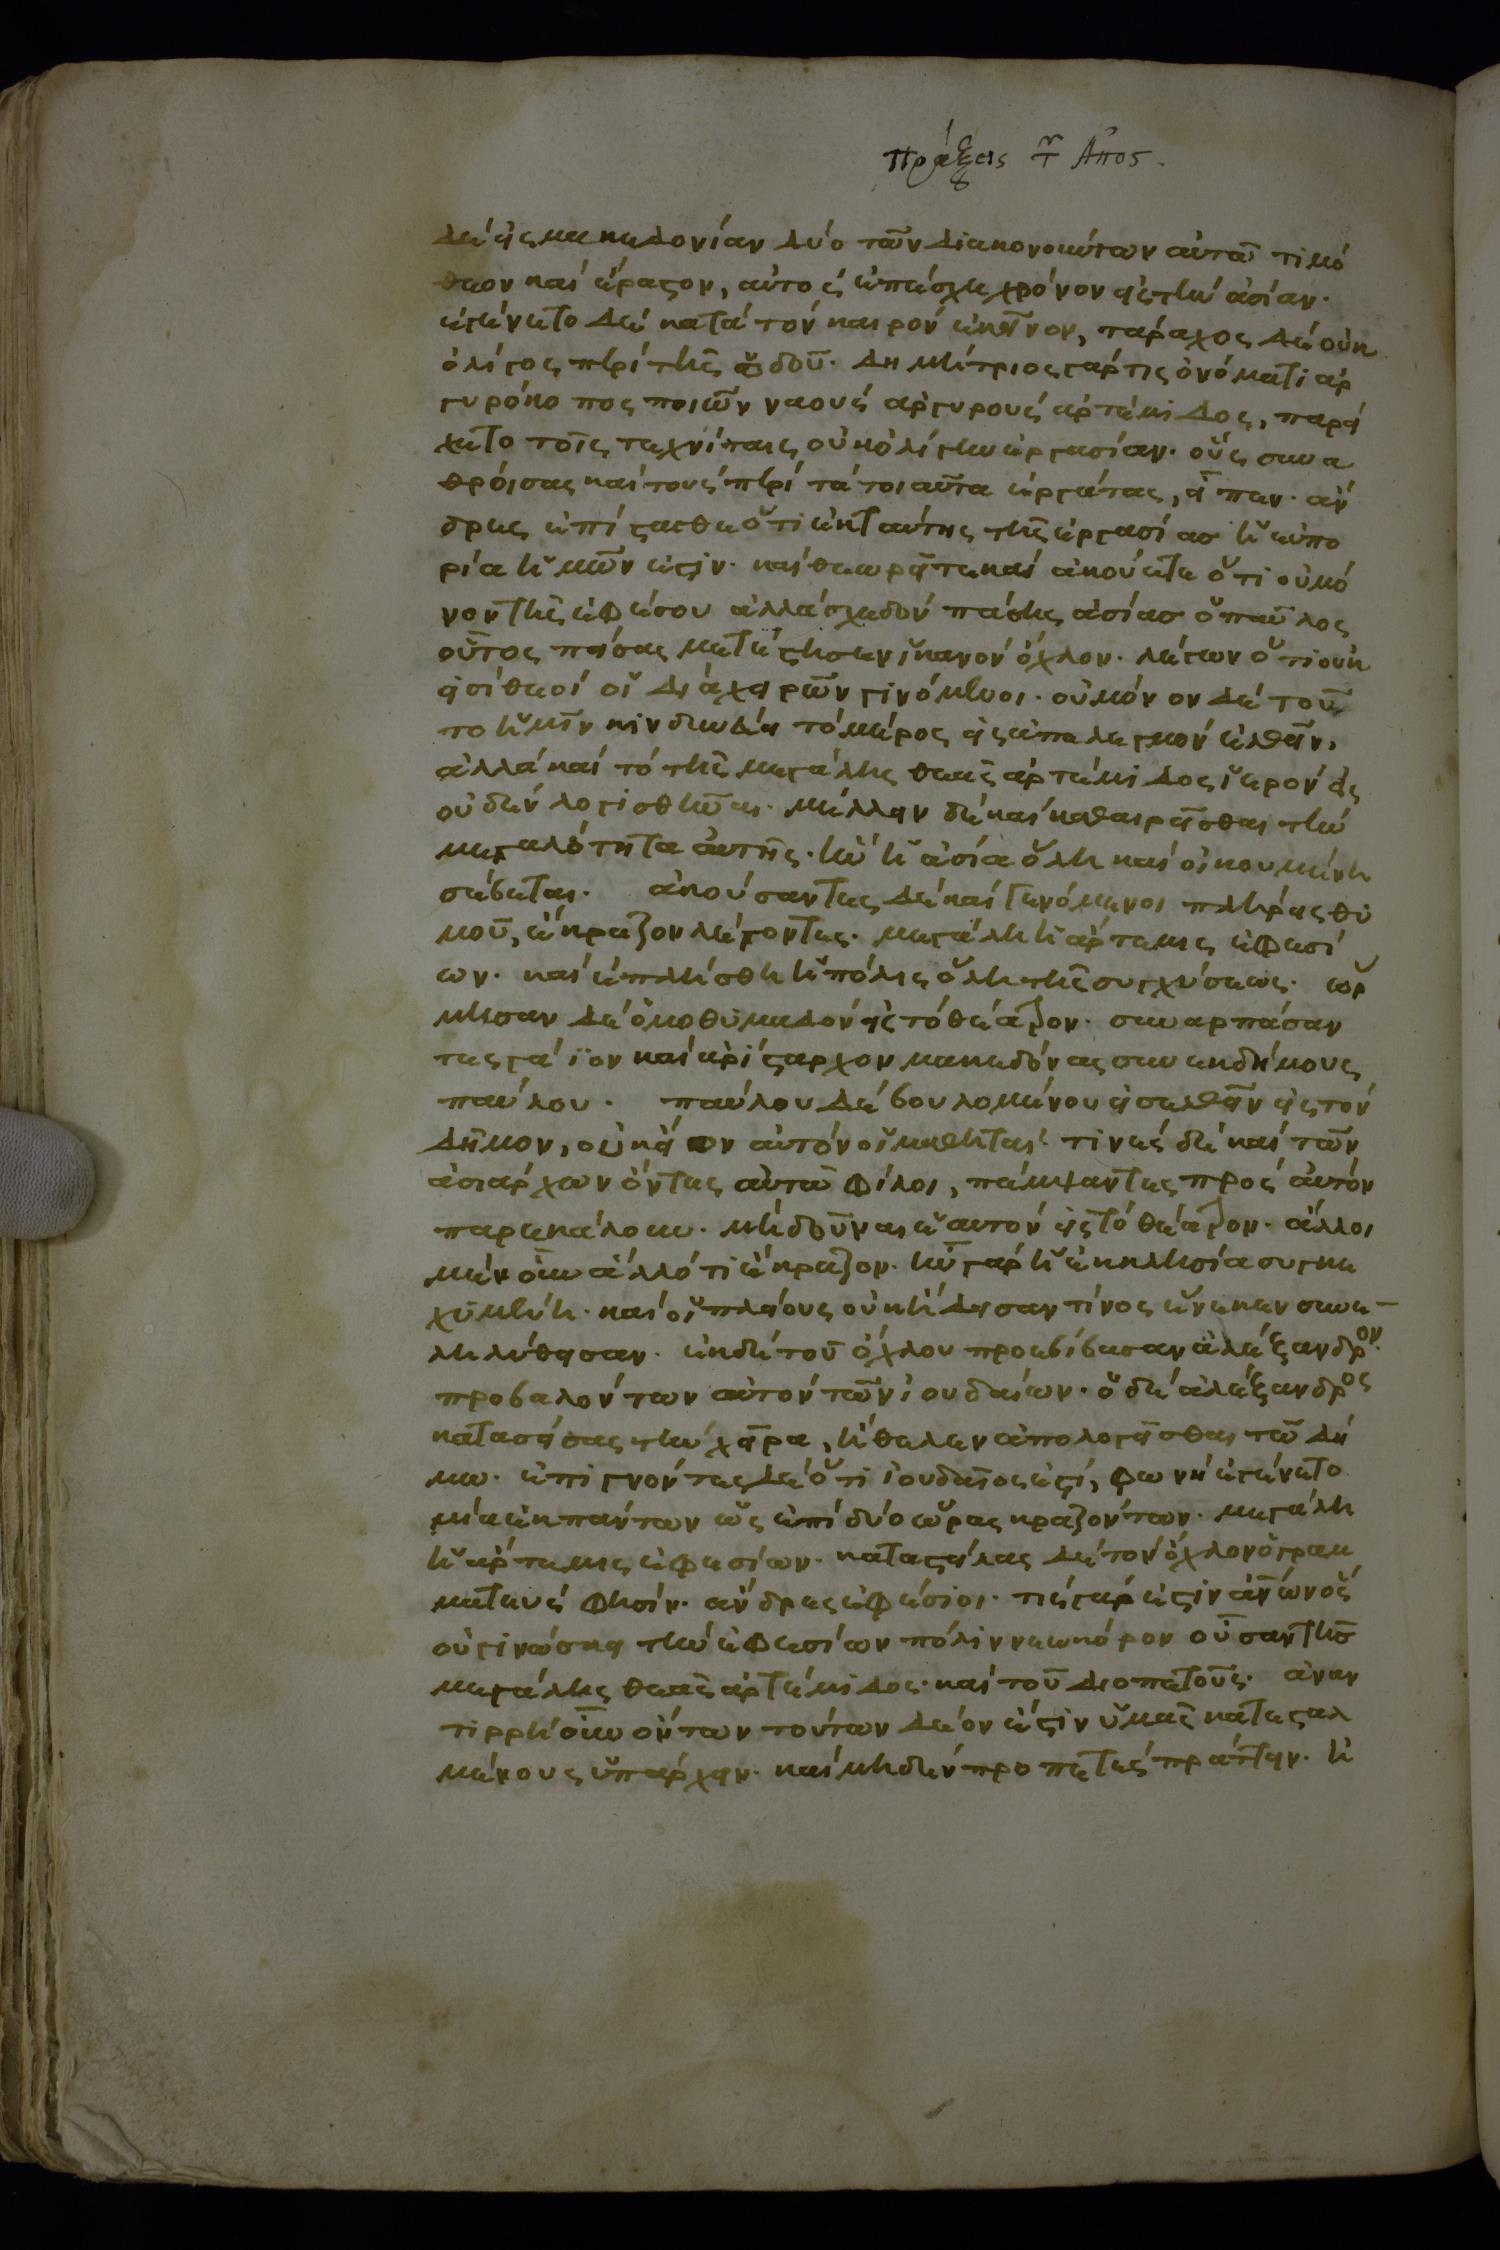 Πράξεις τῶν Ἀποσ.
δὲ εἰς μακεδονίαν δύο τῶν διακονούντων αὐτῶ τιμό
θεον καὶ ἔραστον, αὐτὸς ἐπέσχε χρόνον εἰς τὴν ἀσίαν.
ἐγένετο δὲ κατὰ τὸν καιρὸν ἐκεῖνον, τάραχος δὲ οὐκ
ὀλίγος περὶ τῆς ὁδοῦ. δημήτριος γάρ τις ὀνόματι ἀρ
γυροκόπος ποιῶν ναοὺς ἀργυροὺς ἀρτέμιδος, παρεί
χετο τοῖς τεχνίταις οὐκ ὀλίγην ἐργασίαν. οὓς συνα
θροίσας καὶ τοὺς περὶ τὰ τοιαῦτα ἐργάτας, εἶπεν. ἄν
δρες ἐπίστασθε ὅτι ἐκ ταύτης τῆς ἐργασίασ ἡ εὐπο
ρία ἡμῶν ἐστιν. καὶ θεωρεῖτε καὶ ἀκούετε ὅτι οὐ μό
νον τῆς ἐφέσου ἀλλὰ σχεδὸν πάσης ἀσίασ ὁ παῦλος
οὗτος πείσας μετέστησεν ἱκανὸν ὄχλον. λέγων ὅτι οὐκ
εἰσὶ θεοὶ οἱ διὰ χειρῶν γινόμενοι. οὐ μόνον δὲ τοῦ
το ἡμῖν κινδυνεύει τὸ μέρος εἰς ἀπελεγμὸν ἐλθεῖν,
ἀλλὰ καὶ τὸ τῆς μεγάλης θεᾶς ἀρτέμιδος ἱερὸν εἰς
οὐδὲν λογισθῆναι. μέλλειν δὲ καὶ καθαιρεῖσθαι τὴν
μεγαλότητα αὐτῆς. ἣν ἡ ἀσία ὅλη καὶ οἰκουμένη
σέβεται. ἀκούσαντες δὲ καὶ γενόμενοι πλήρεις θυ
μοῦ, ἔκραζον λέγοντες. μεγάλη ἡ ἄρτεμις ἐφεσί
ων. καὶ ἐπλήσθη ἡ πόλις ὅλη τῆς συγχύσεως. ὥρ
μησαν δὲ ὁμοθυμαδὸν εἰς τὸ θέατρον. συναρπάσαν
τες γάϊον καὶ ἀρίσταρχον μακεδόνας συνεκδήμους
παύλου. παύλου δὲ βουλομένου εἰσελθεῖν εἰς τὸν
δῆμον, οὐκ εἴων αὐτὸν οἱ μαθηταί. τινὲς δὲ καὶ τῶν
ἀσιαρχῶν ὄντες αὐτῶ φίλοι, πέμψαντες πρὸς αὐτὸν
παρεκάλουν. μὴ δοῦναι ἑαυτὸν εἰς τὸ θέατρον. ἄλλοι
μὲν οὖν ἄλλό τι ἔκραζον. ἦν γὰρ ἡ ἐκκλησία συγκε
χυμένη. καὶ οἱ πλείους οὐκ ᾔδεισαν τίνος ἕνεκεν συνε–
ληλύθησαν. ἐκ δὲ τοῦ ὄχλου προεβίβασαν ἀλέξανδρον.
προβαλόντων αὐτὸν τῶν ἰουδαίων. ὁ δὲ ἀλέξανδρος
κατασείσας τὴν χεῖρα, ἤθελεν ἀπολογεῖσθαι τῶ δή
μω. ἐπιγνόντες δὲ ὅτι ἰουδαῖος ἐστί, φωνὴ ἐγένετο
μία ἐκ πάντων ὡς ἐπὶ δύο ὥρας κραζόντων. μεγάλη
ἡ ἄρτεμις ἐφεσίων. καταστείλας δὲ τὸν ὄχλον ὁ γραμ
ματεὺς φησίν. ἄνδρες ἐφέσιοι. τίς γάρ ἐστιν ἀνων ὃς
οὐ γινώσκει τὴν ἐφεσίων πόλιν νεωκόρον οὖσαν τῆσ
μεγάλης θεᾶς ἀρτέμιδος. καὶ τοῦ διοπετοῦς. ἀναν
τιρρήτων οὖν ὄντων τούτων δέον ἐστὶν ὑμᾶς κατεσταλ
μένους ὑπάρχειν. καὶ μηδὲν προπετὲς πράττειν. ἠ